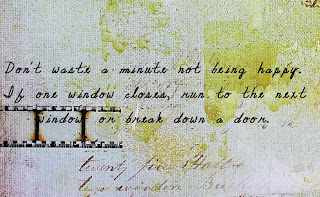 Don't waste a minute not being happy.
If one window closes, run to the next
window or break down a door.
twenty five